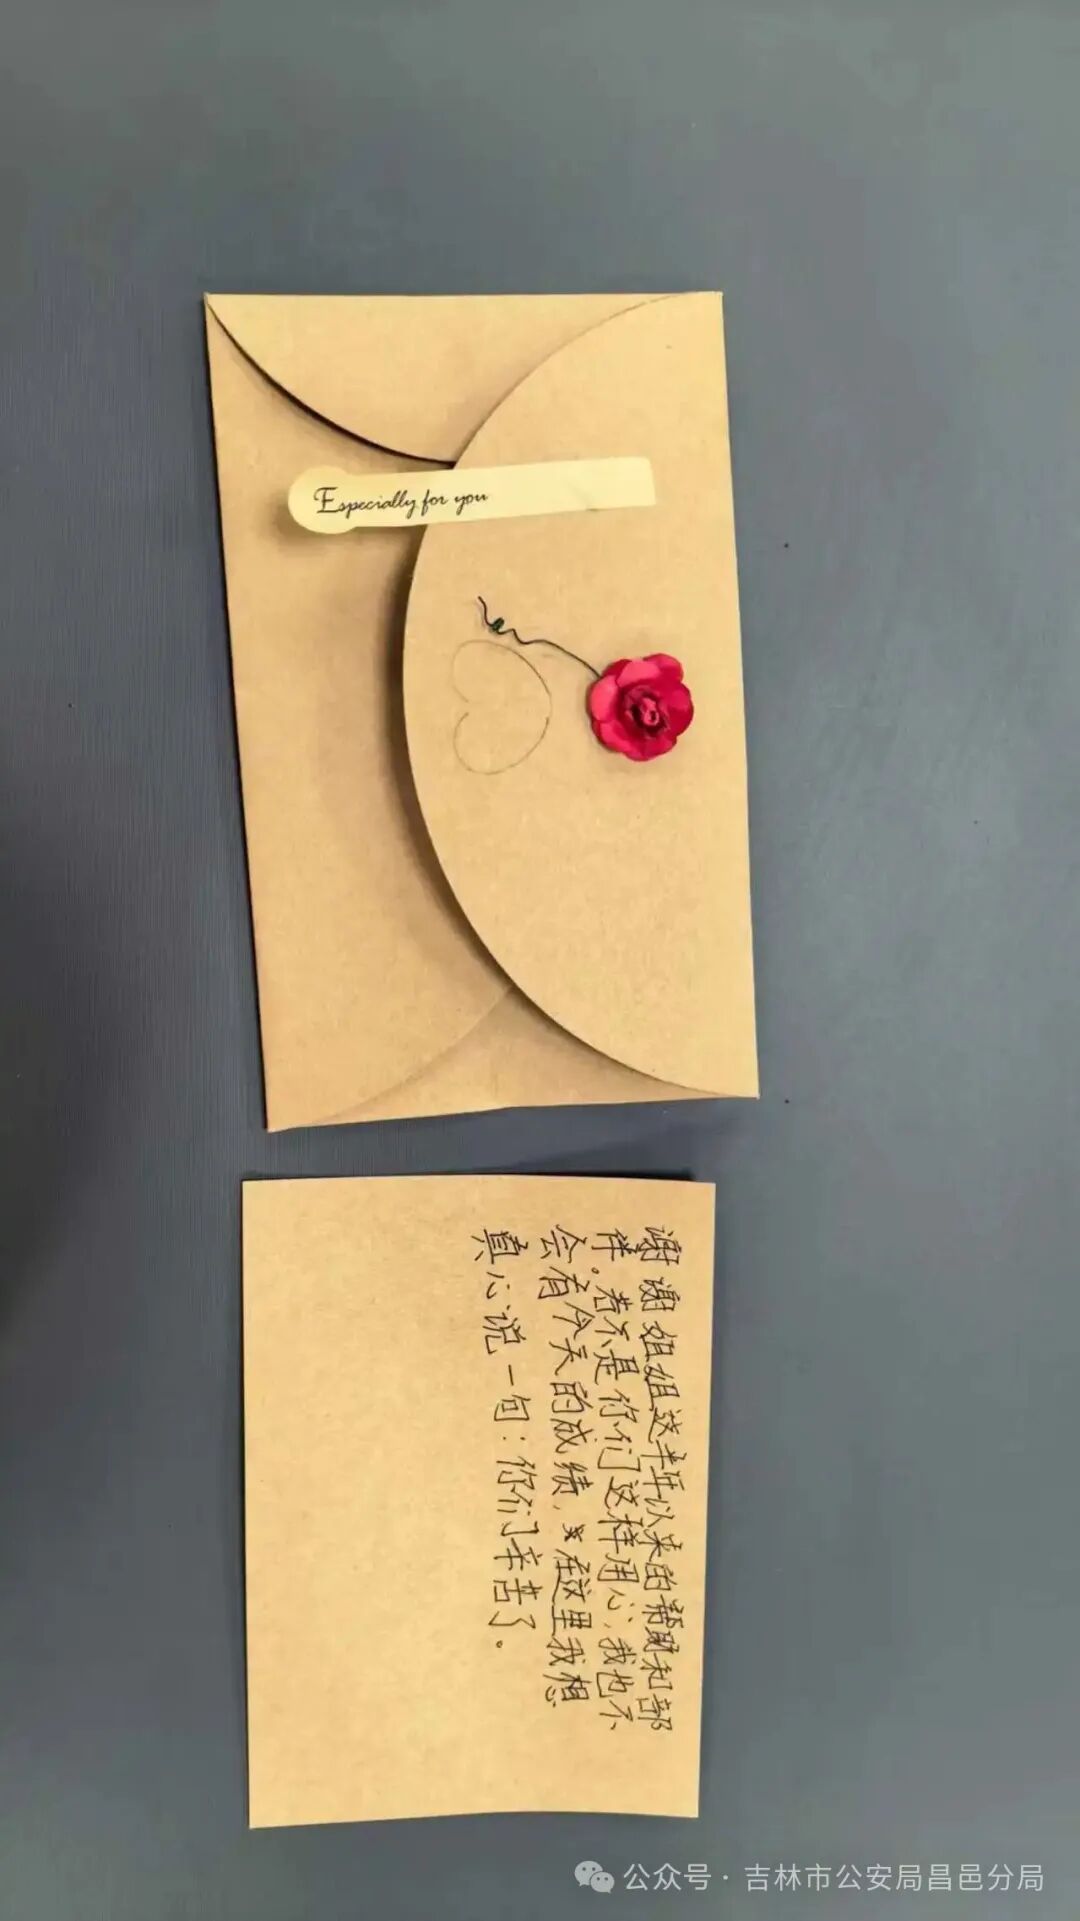 Especially for you
谢谢姐姐这半年以来的帮助和部
件。若不是你们这样用心,我也不
会有今天的成绩,在这里我想
真心说一句:你们辛苦了。
公众号·吉林市公安局昌邑分局